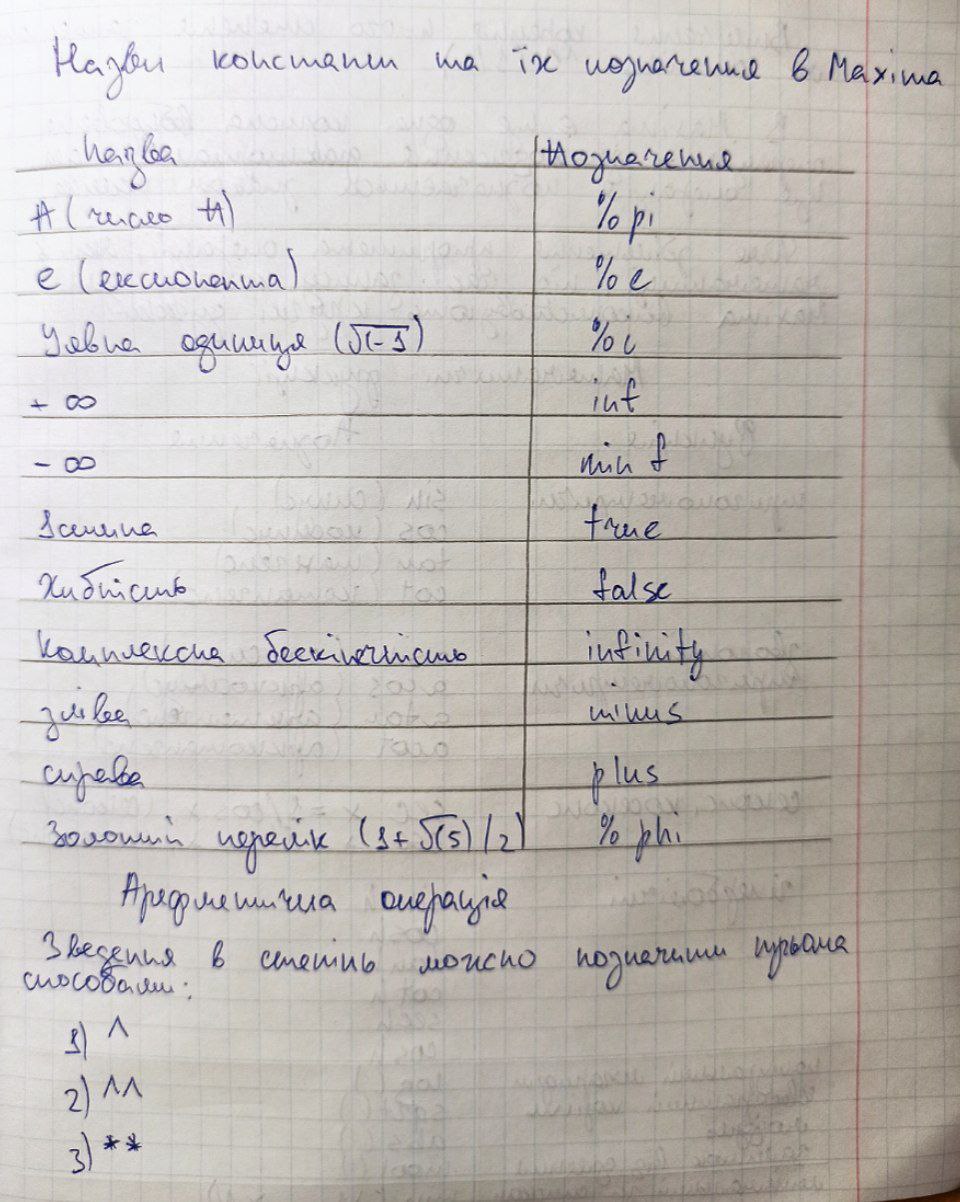 Назви констант та їх позначення в Maxima
Назва Позначення
π (число π) %pi
e (експонента) %e
Уявна одиниця (√(-1) %i
+ ∞ inf
- ∞ minf
Істина true
Хибність false
Комплексна бескінечність infinity
зліва minus
справа plus
Золотий перелік (1+√(5)/2) %phi
Арефметична операція
Зведення в степінь можно позначити трьома
способами:
1) ^
2) ^^
3) **